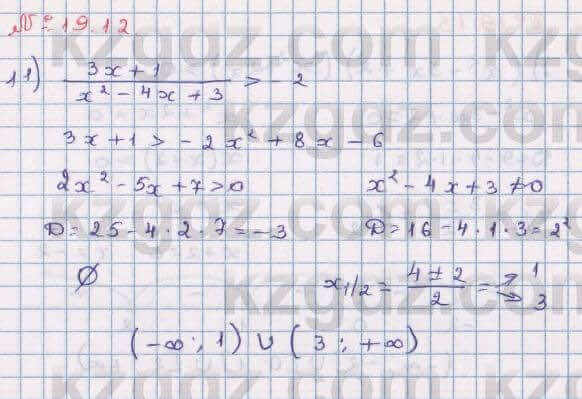 № 19.12
1) (3x + 1)/(x² - 4x + 3) > - 2
3x + 1 > - 2x² + 8x - 6
2x² - 5x + 7 > 0 x² - 4x + 3 ≠ 0
D = 25 - 4 · 2 · 7 = - 3 D = 16 - 4 · 1 · 3 = 2²
∅ x₁/₂ = (4 ± 2)/2 = 1
3
(-∞; 1) ∪ (3; +∞)
kzgdz.com